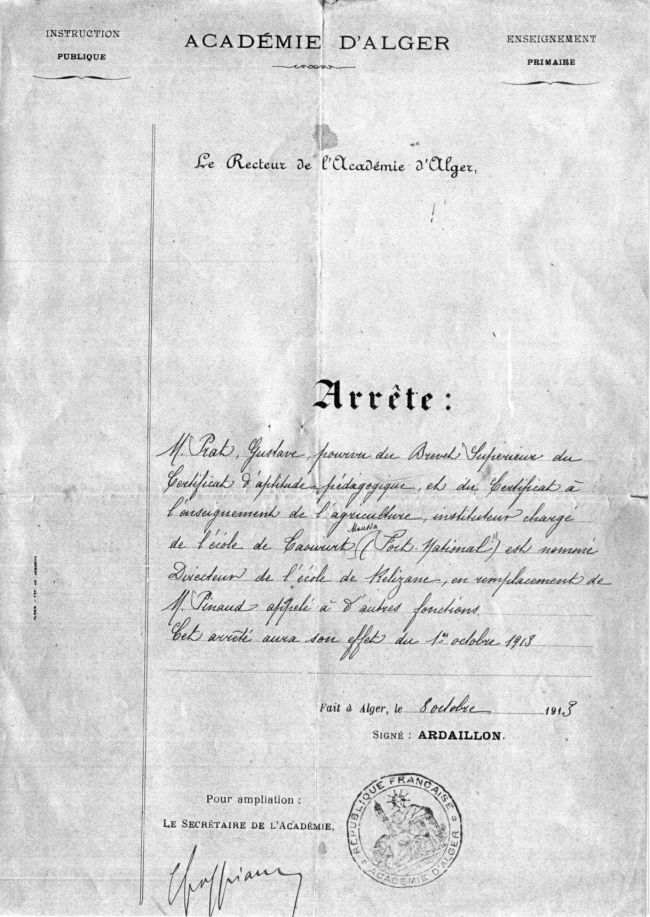 INSTRUCTION
PUBLIQUE
ACADÉMIE D'ALGER
ENSEIGNEMENT
PRIMAIRE
Le Recteur de l'Académie d'Alger,
Arrête :
M. Prat, Gustave, pourvu du Brevet Supérieur du
Certificat d'aptitude pédagogique, et du Certificat à
l'enseignement de l'agriculture, instituteur chargé
Moussa
de l'école de Taourirt (Fort-National) est nommé
Directeur de l'école de Relizane, en remplacement de
M. Pinaud appelé à d'autres fonctions.
Cet arrêté aura son effet du 1er octobre 1913
Fait à Alger, le 8 octobre 1913
SIGNÉ : ARDAILLON.
Pour ampliation :
LE SECRÉTAIRE DE L'ACADÉMIE,
RÉPUBLIQUE FRANÇAISE
ACADÉMIE D'ALGER